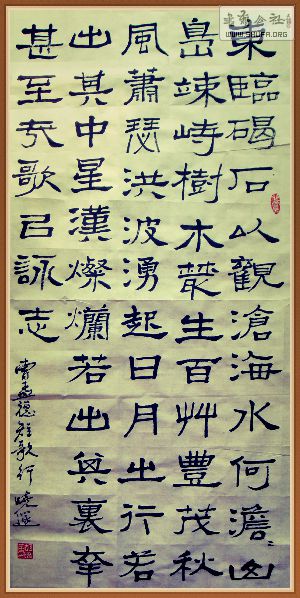 東臨碣石以觀滄海水何澹〻山
島竦峙樹木叢生百艸豐茂秋
風蕭瑟洪波湧起日月之行若
出其中星漢燦爛若出其裏幸
甚至哉歌以詠志
曹孟德短歌行
WWW.SHUFA.ORG